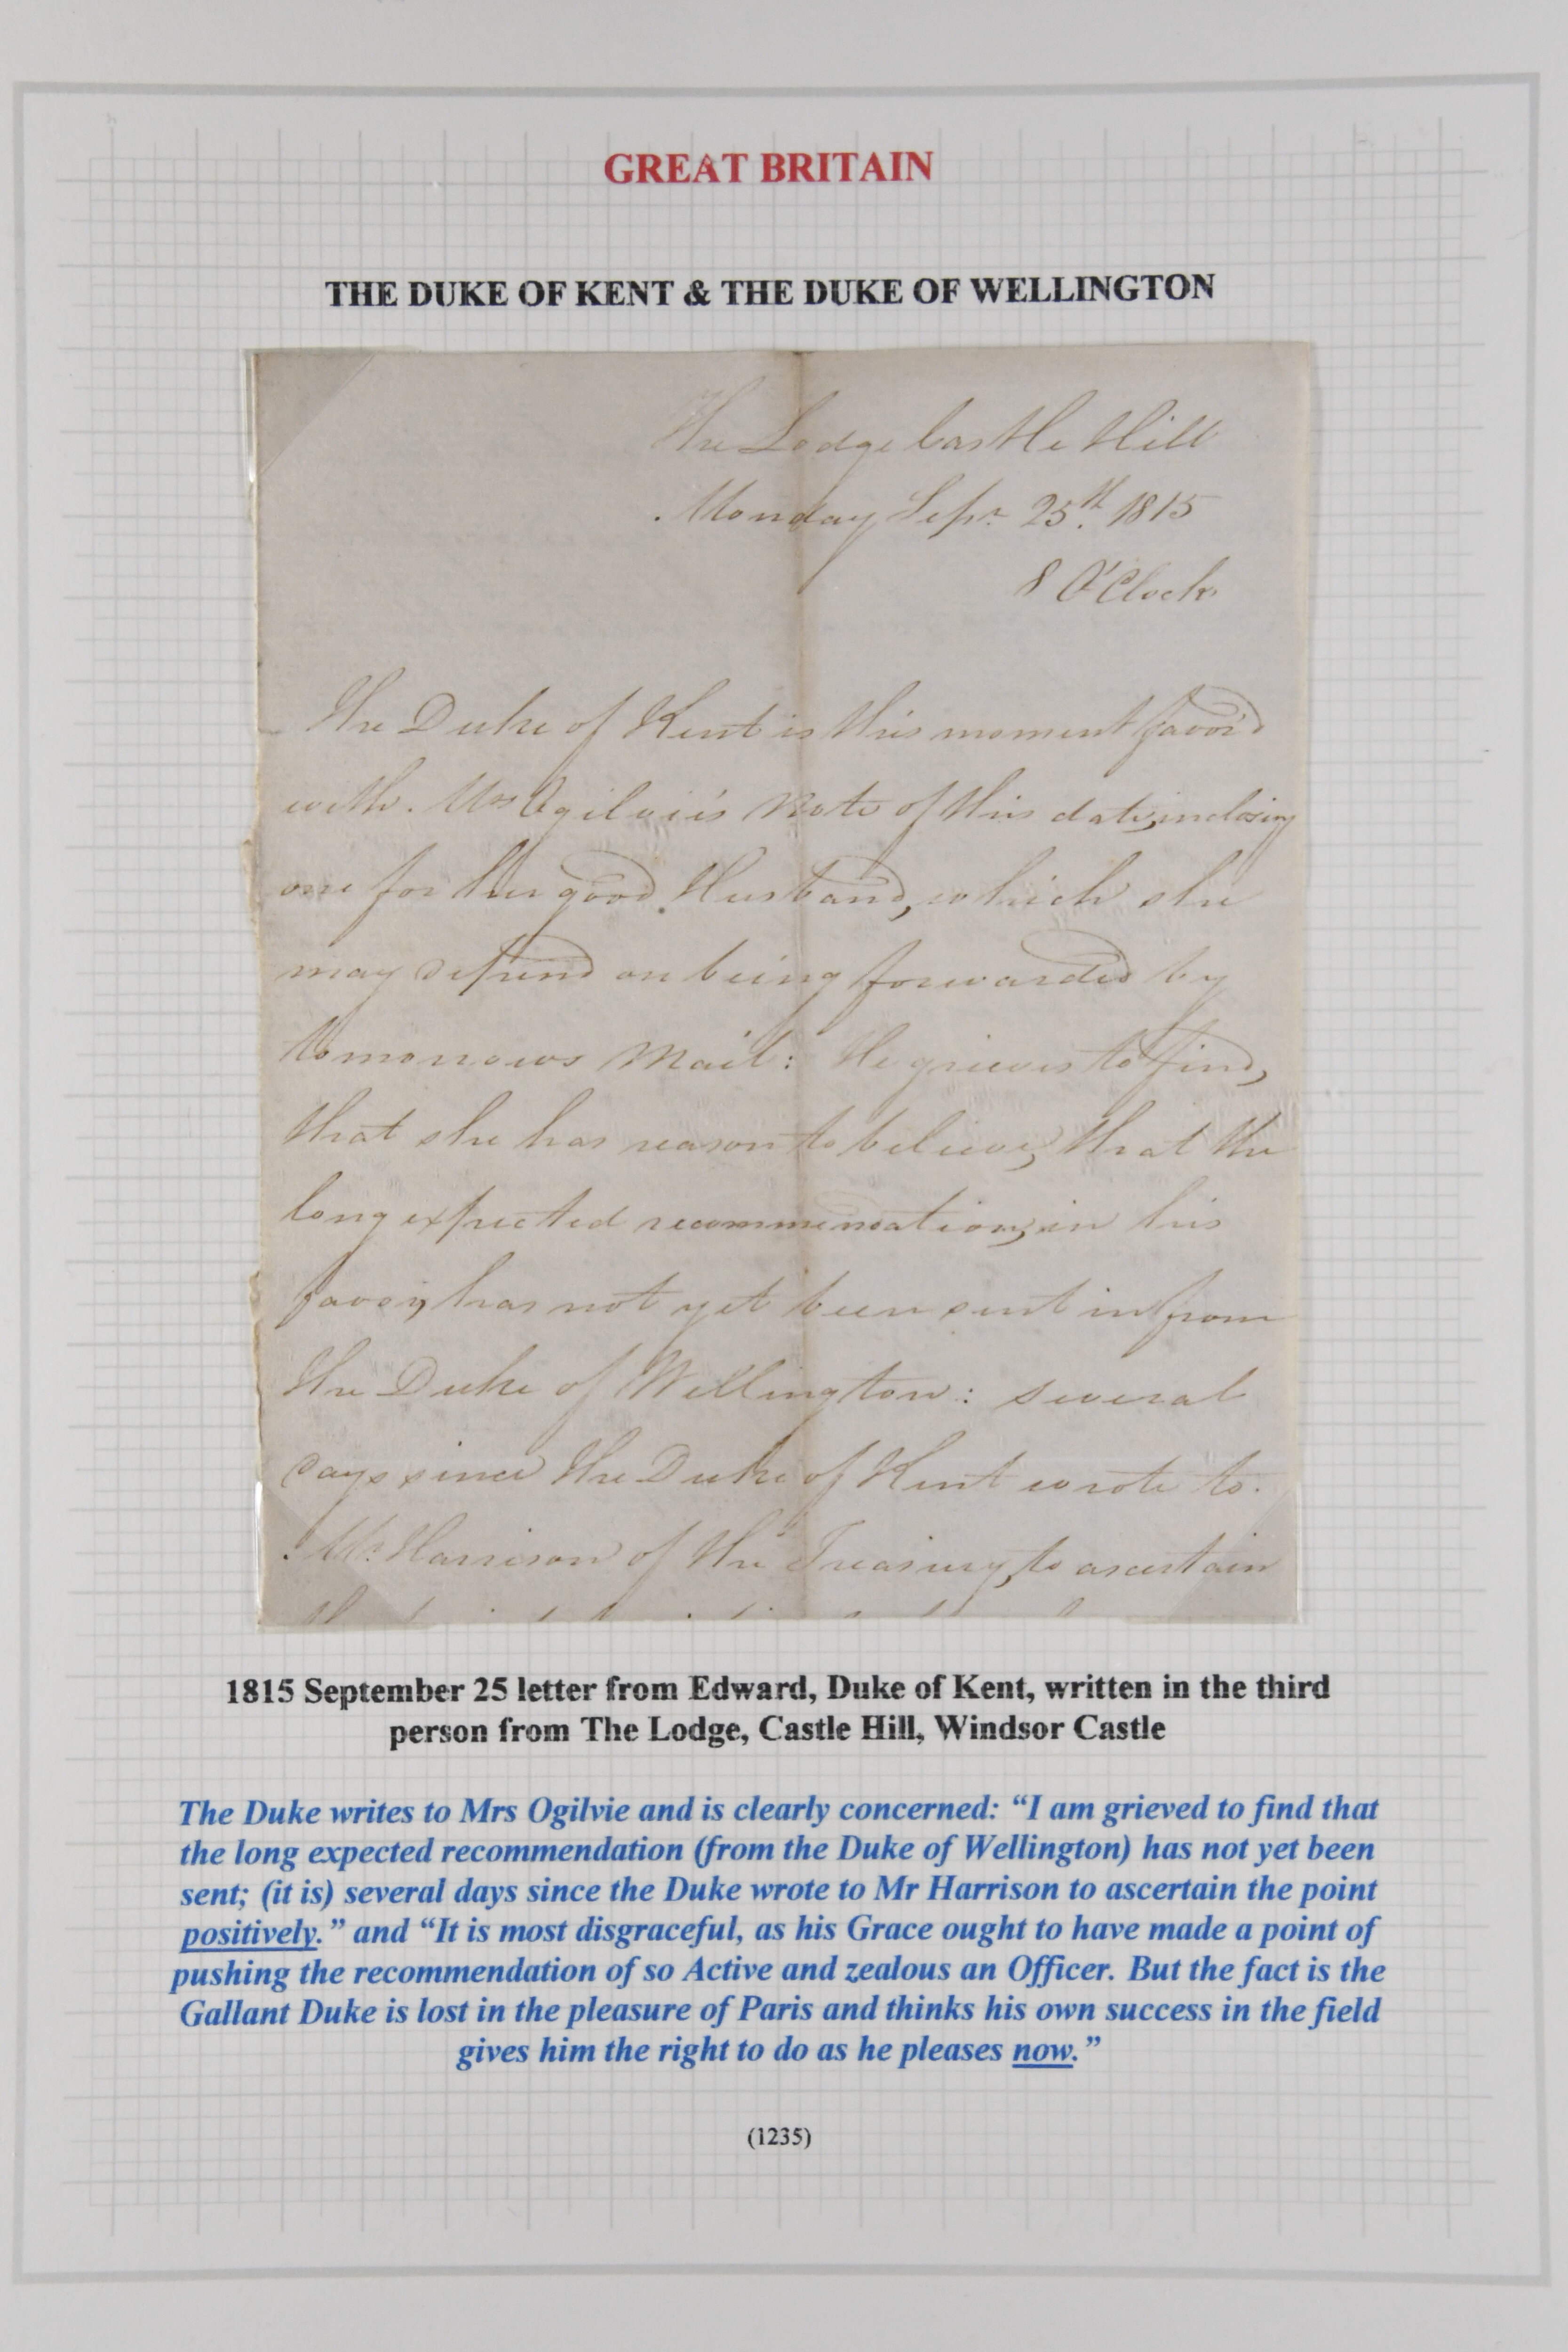 GREAT BRITAIN
THE DUKE OF KENT & THE DUKE OF WELLINGTON
The Lodge Castle Hill
Monday Sepr. 25th. 1815
8 O'Clock
The Duke of Kent is this moment favor'd
with Mrs Ogilvie's Note of this date, inclosing
one for her good Husband, which she
may depend on being forwarded by
tomorrows Mail: He grieves to find,
that she has reason to believe, that the
long expected recommendation, in his
favor, has not yet been sent in from
the Duke of Wellington: several
days since the Duke of Kent wrote to
Mr. Harrison of the Treasury, to ascertain
1815 September 25 letter from Edward, Duke of Kent, written in the third
person from The Lodge, Castle Hill, Windsor Castle
The Duke writes to Mrs Ogilvie and is clearly concerned: “I am grieved to find that
the long expected recommendation (from the Duke of Wellington) has not yet been
sent; (it is) several days since the Duke wrote to Mr Harrison to ascertain the point
positively.” and “It is most disgraceful, as his Grace ought to have made a point of
pushing the recommendation of so Active and zealous an Officer. But the fact is the
Gallant Duke is lost in the pleasure of Paris and thinks his own success in the field
gives him the right to do as he pleases now.”
(1235)